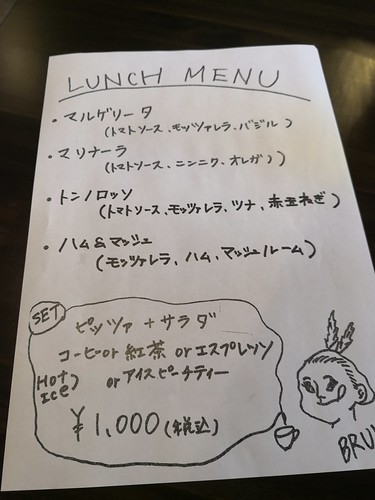 LUNCH MENU
・マルゲリータ
(トマトソース、モッツァレラ、バジル)
・マリナーラ
(トマトソース、ニンニク、オレガノ)
・トンノロッソ
(トマトソース、モッツァレラ、ツナ、赤玉ねぎ)
・ハム&マッシュ
(モッツァレラ、ハム、マッシュルーム)
SET
ピッツァ + サラダ
コーヒーor 紅茶 or エスプレッソ
Hot
Ice) or アイスピーチティー
¥1,000(税込)